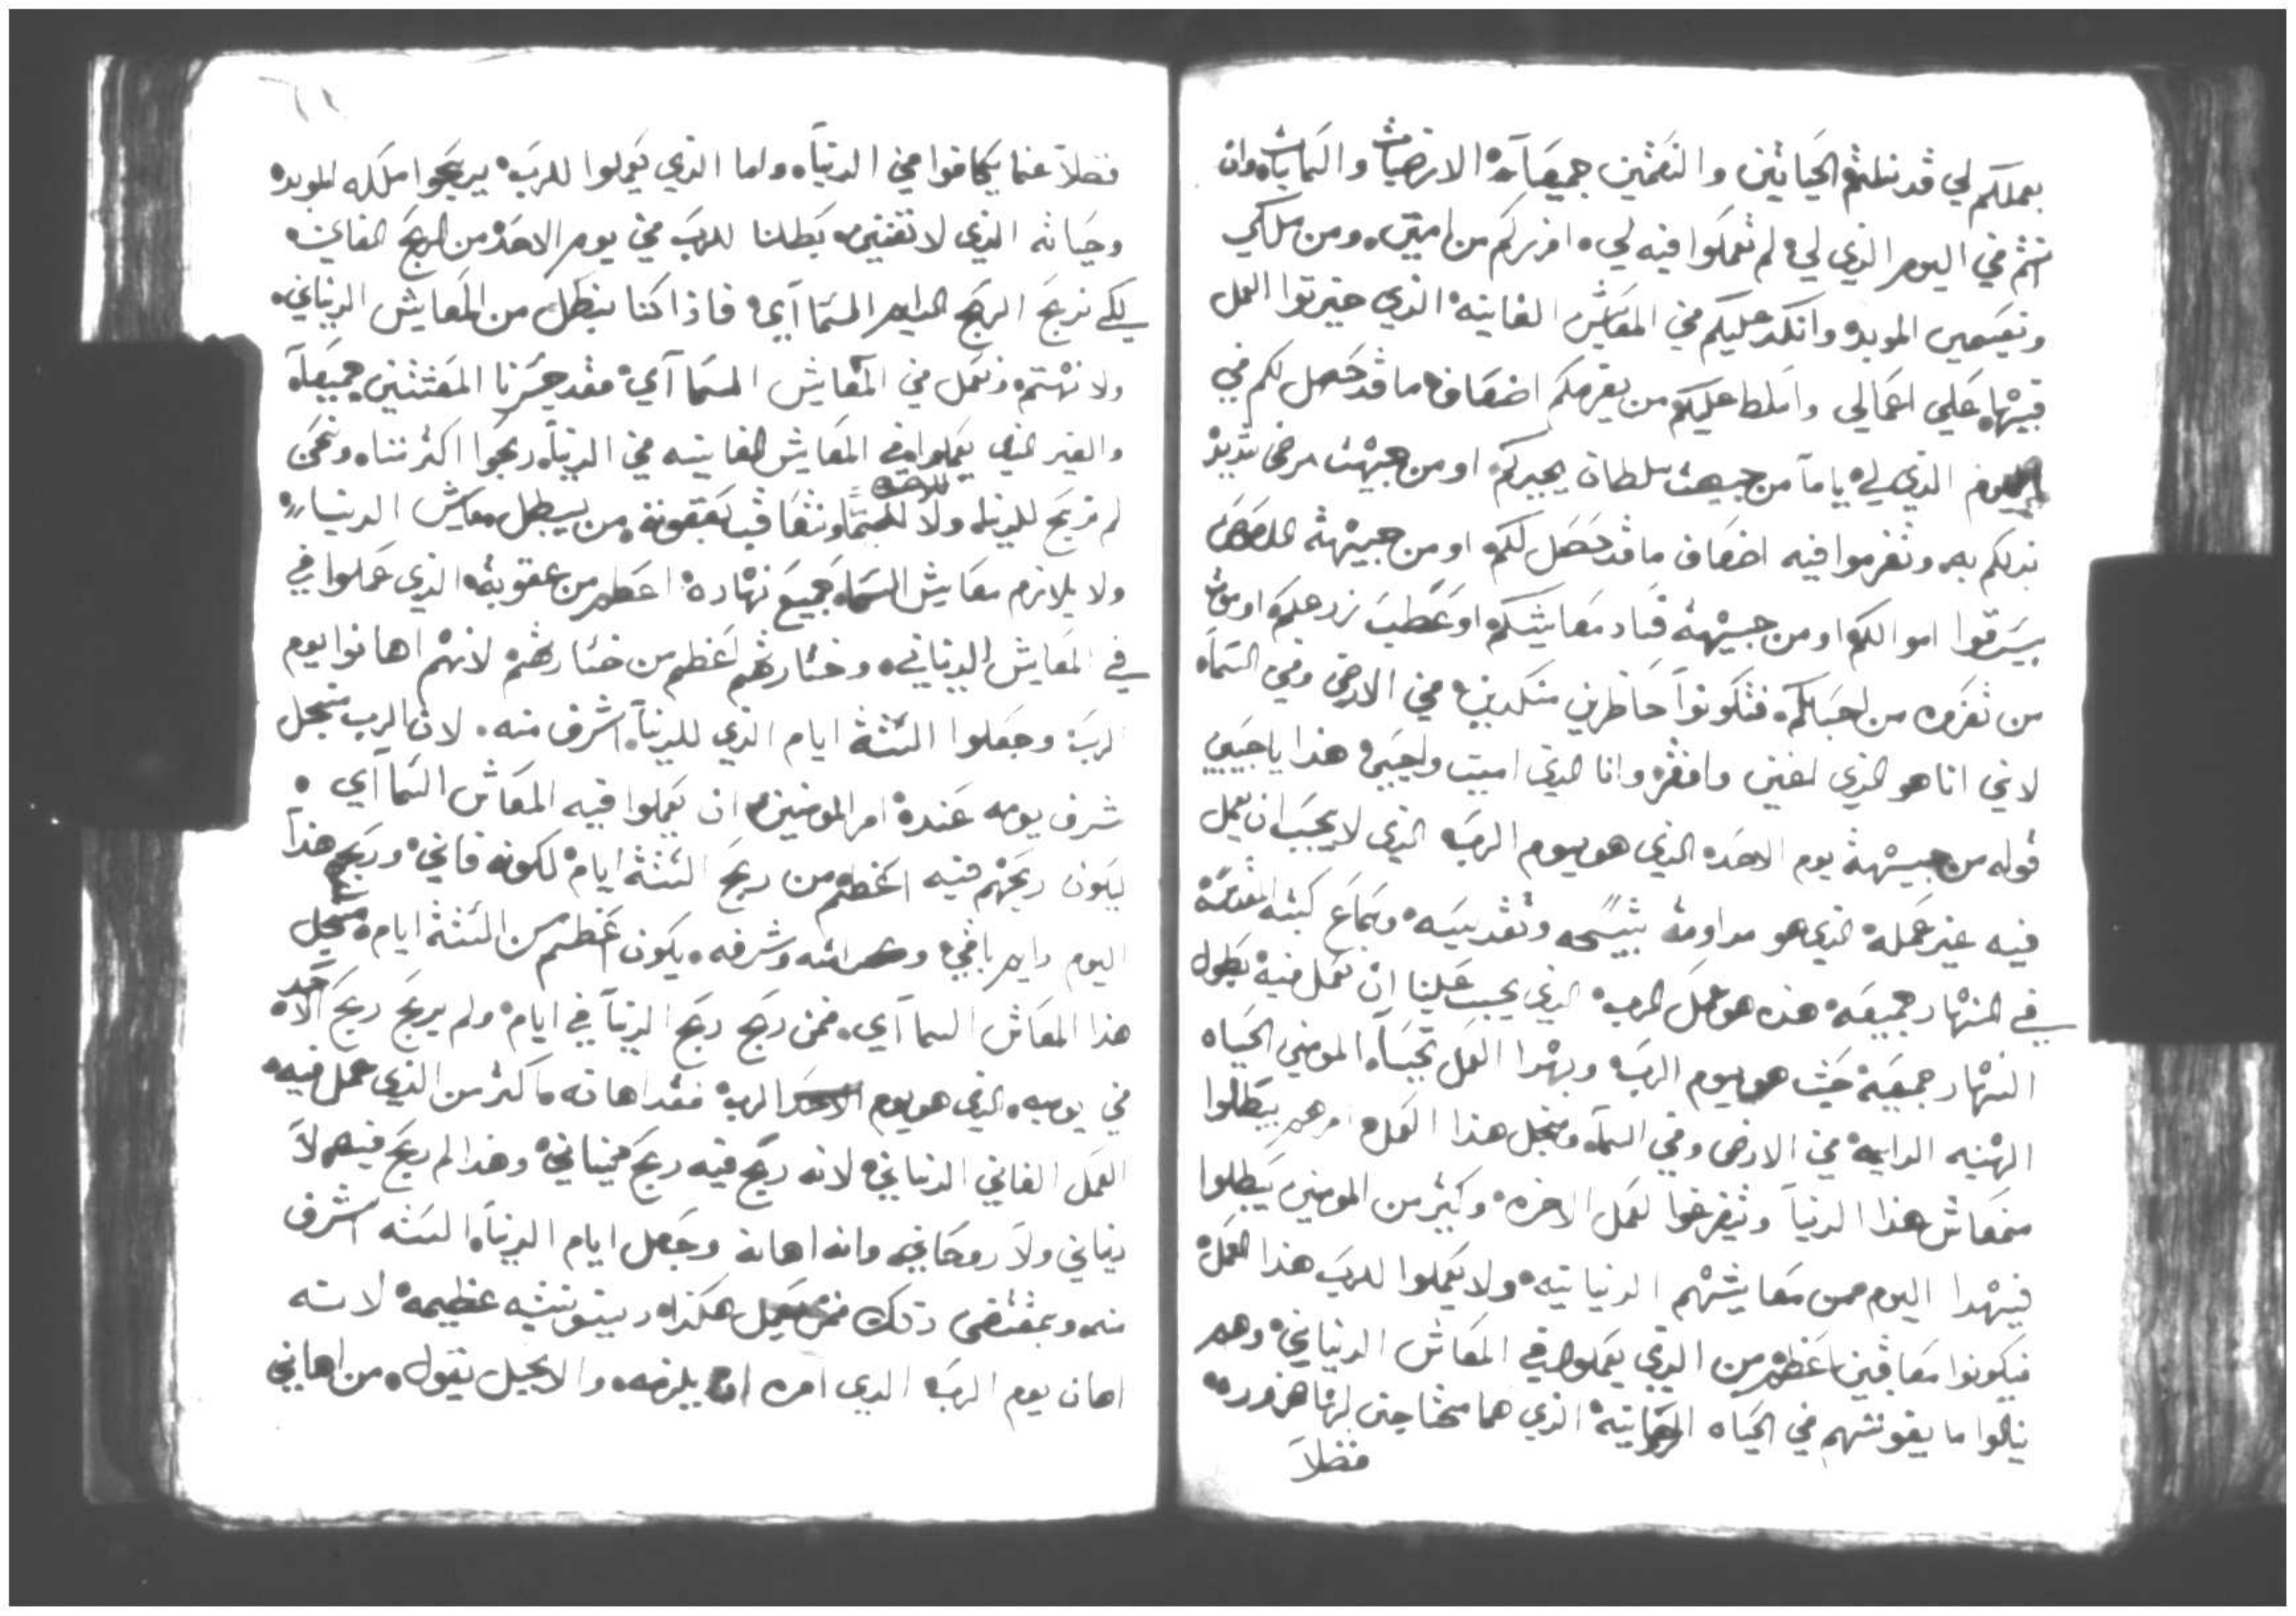 بعملكم لي قد نلتم الحياتين والنعمتين جميعاً الارضيات والسمايات وان
انتم في اليوم الذي لي لم تعملوا فيه لي افرزكم من امتي ومن ملكي
ونعيمي الموبد وانكد عليكم في المعاش الفانيه الذي خيرتوا العمل
فيها علي اعمالي واسلط عليكم من يغرمكم اضعاف ما قد حصل لكم في
اليوم الذي لي ياما من جيهت سلطان يجيركم او من جيهت مرض شديد
ننزلكم به وتغرموا فيه اضعاف ما قد حصل لكم او من جيهة اللصوص
يسرقوا اموالكم او من جيهة فساد معايشكم او عطب زرعكم او موت
من تعزوه من احبابكم فتكونوا خاطرين منكدين في الارض وفي السماء
لاني انا هو الذي اغني وافقر وانا الذي اميت واحيي هذا يا حبيبي
قوله من جيهة يوم الاحد الذي هو يوم الرب الذي لا يجب ان يعمل
فيه غير عمله الذي هو مداومة تسبيحه وتقديسه وسماع كتبه المقدسة
في النهار جميعه هذه هو عمل الرب الذي يجب علينا ان نعمل فيه بطول
النهار جميعه حيث هو يوم الرب وبهذا العمل تحيا المومنين الحياه
الهنيه الدايمة في الارض وفي السماء ومنجل هذا العمل امرهم يبطلوا
منمعاش هذا الدنيا وتيفرغوا لعمل الاخره وكثير من المومنين يبطلوا
فيهدا اليوم من معايشهم الدنيانيه ولا يعملوا للرب هذا العمل
فيكونوا معاقبين اعظم من الذي يعملوا في المعاش الدنياني وهم
ينالوا ما يقوتهم في الحياه الجسمانية الذي هما محتاجين لها ضروره
فضلاً
فضلاً عنما يكافوا في الدنيا واما الذي يعملوا للرب يربحوا ملكه الموبده
وحياته الذي لا تفني بطلنا للرب في يوم الاحد من الربح الفاني
لكي نربح الربح الدايم السمااي فاذا كنا نبطل من المعايش الدنياني
ولا نهتم ونعمل في المعايش السمااي فقد خسرنا المعشتين جميعاً
والغير الذي يعملوا في المعايش الفانيه في الدنيا ربحوا اكثر منا ونحن
لم نربح للدنيا ولا للسما ونتعاقب بعقوبة من يبطل معايش الدنيا
ولا يلازم معايش السما جميع نهاره اعظم من عقوبة الذي عملوا في
في المعايش الدنياني وخسارتهم اعظم من خسارتهم لانهم اهانوا يوم
الرب وجعلوا الستة ايام الذي للدنيا اشرف منه لان الرب منجل
شرف يومه عنده امر المومنين ان يعملوا فيه المعاش السمااي
ليكون ربحهم فيه اعظم من ربح الستة ايام لكونه فاني وربح هذا
اليوم دايم باقي وكرامته وشرفه يكون اعظم من الستة ايام منجل
هذا المعاش السمااي فمن ربح ربح الدنيا في ايام ولم يربح ربح الاخره
في يوميه الذي هو يوم الرب فقد اهانه اكثر من الذي عمل فيه
العمل الفاني الدنياني لانه ربح فيه ربح جسداني وهذا لم ربح فيهم لا
دنياني ولا روحاني وانه اهانه وجعل ايام الدنيا السته اشرف
منه وبمقتضى ذلك فمن يعمل هكذا دينونته عظيمه لانه
اهان يوم الرب الذي امره ان يلزمه والانجيل يقول من اهانني